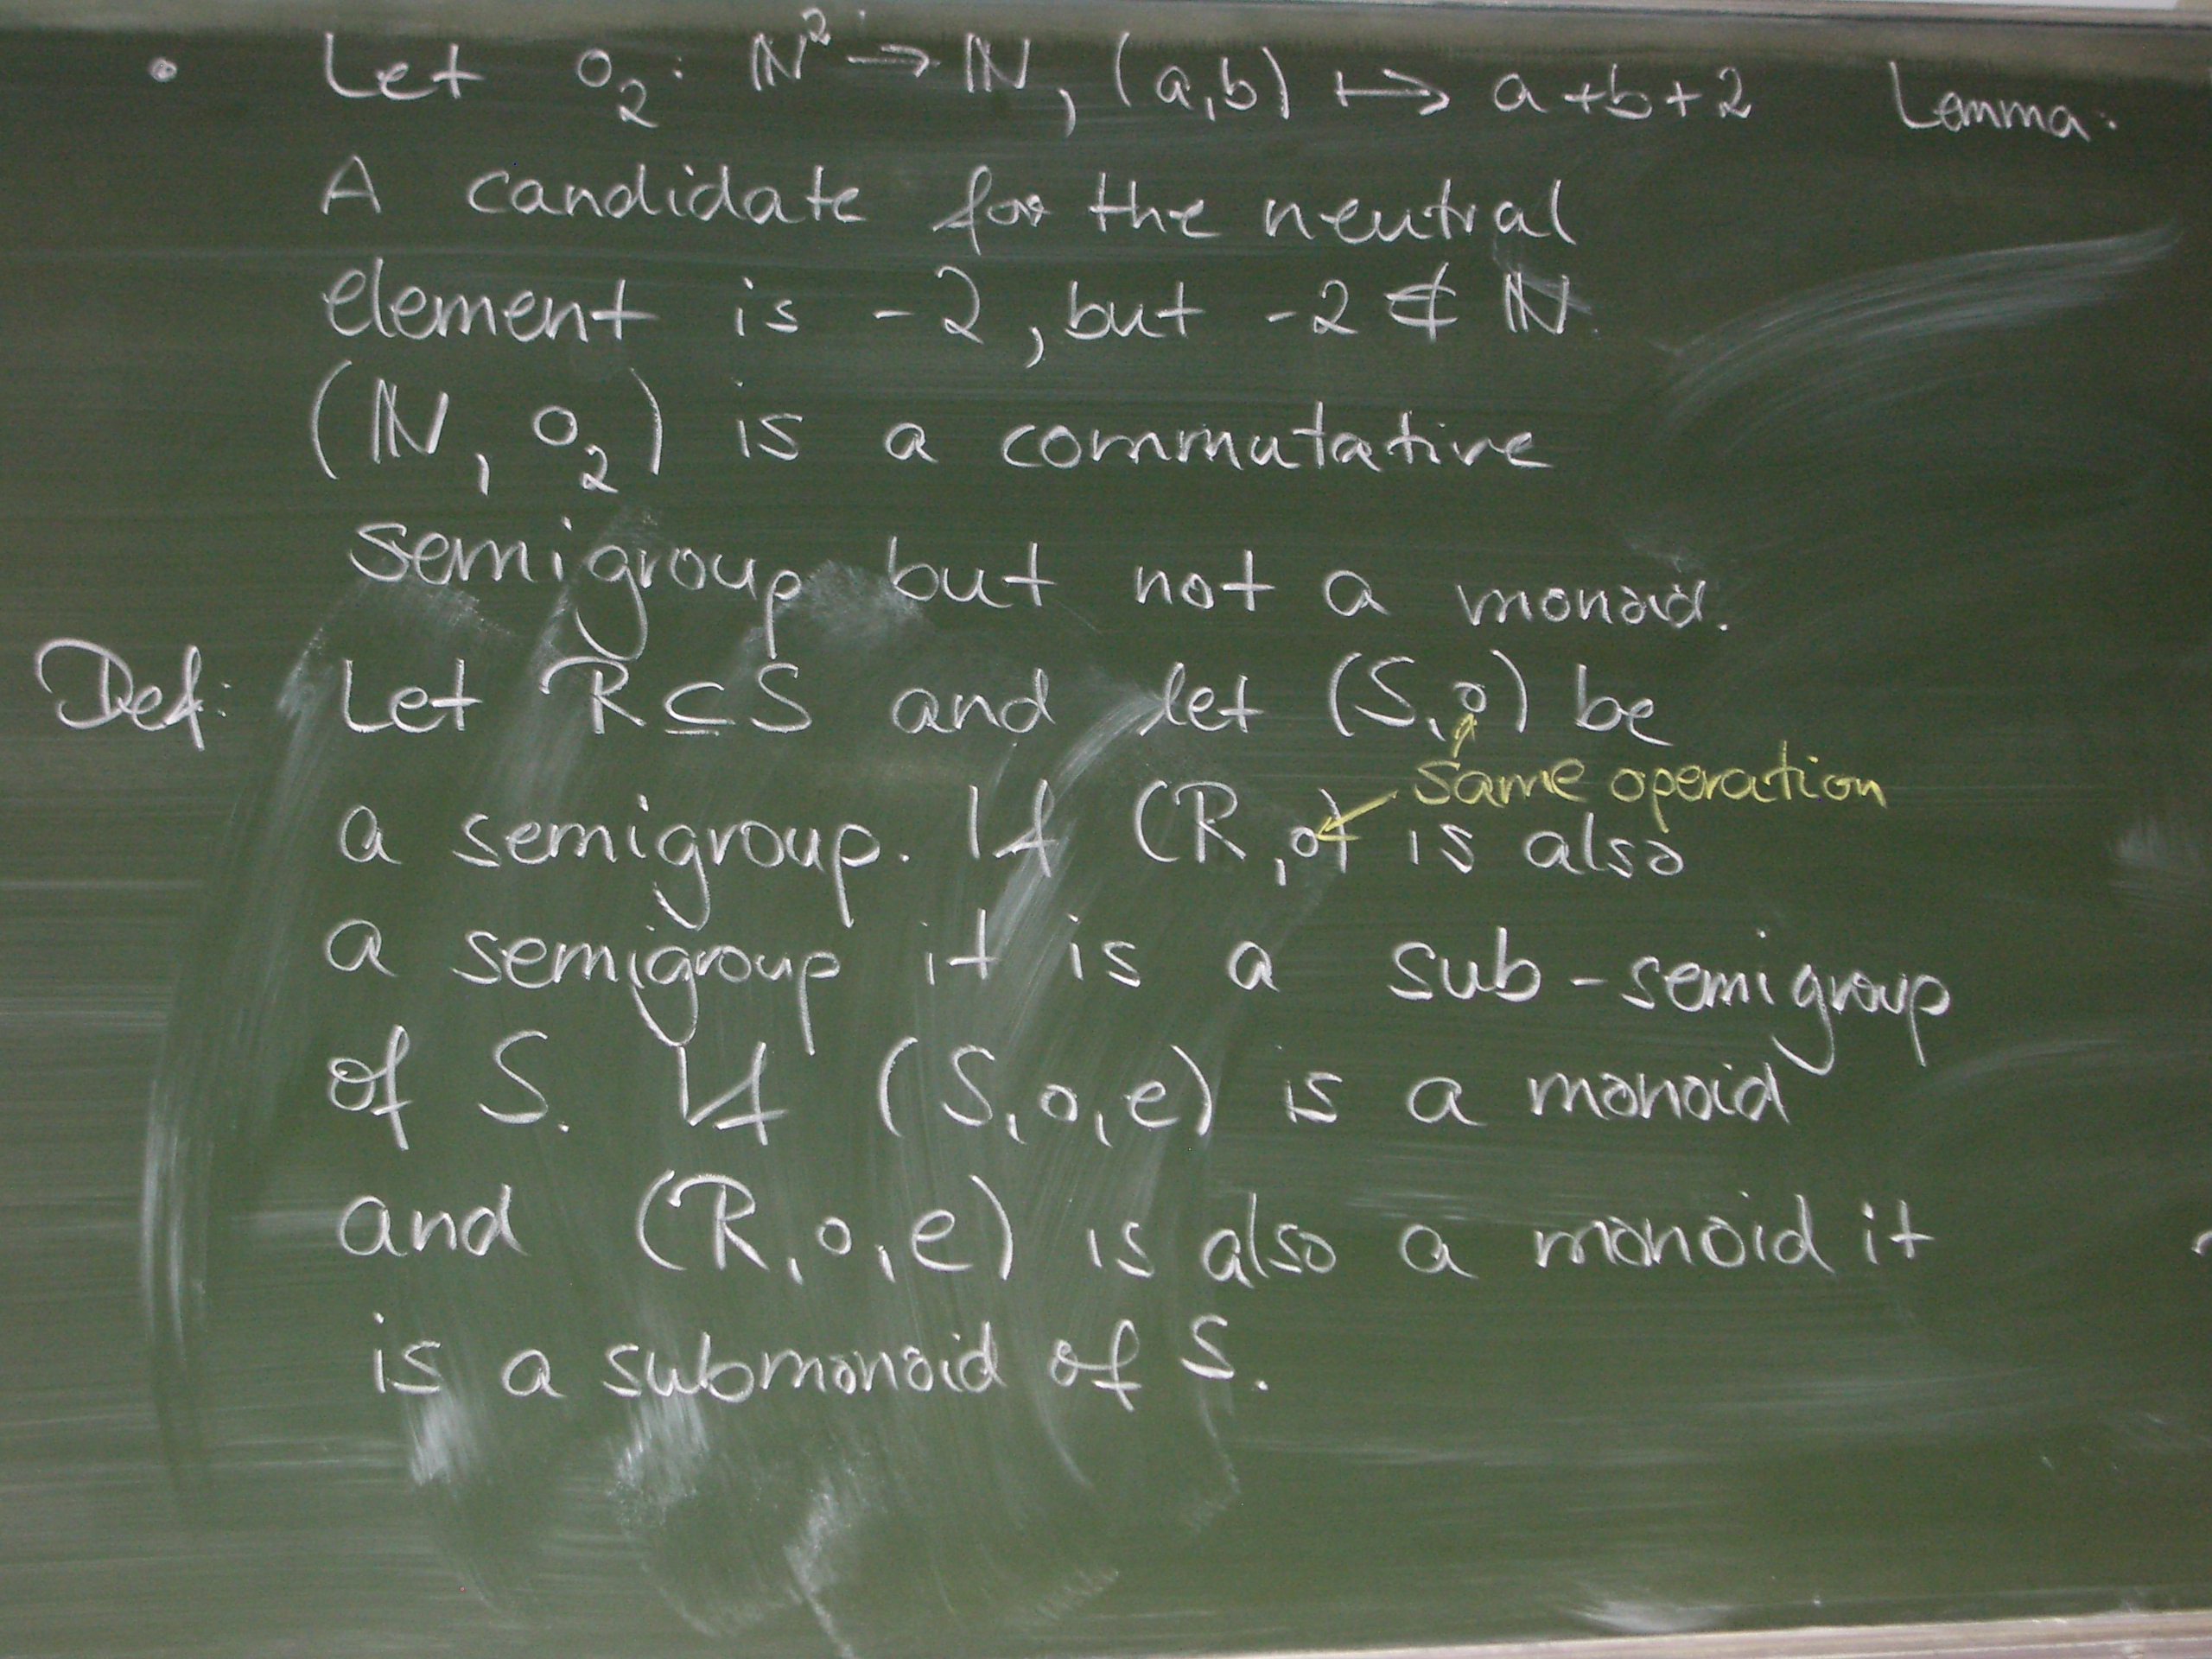 • Let ∘₂: ℕ² → ℕ, (a,b) ↦ a+b+2
A candidate for the neutral
element is -2, but -2 ∉ ℕ
(ℕ, ∘₂) is a commutative
semigroup but not a monoid.
Def: Let R ⊆ S and let (S,∘) be
same operation
a semigroup. If (R,∘) is also
a semigroup it is a sub-semigroup
of S. If (S,∘,e) is a monoid
and (R,∘,e) is also a monoid it
is a submonoid of S.
Lemma: